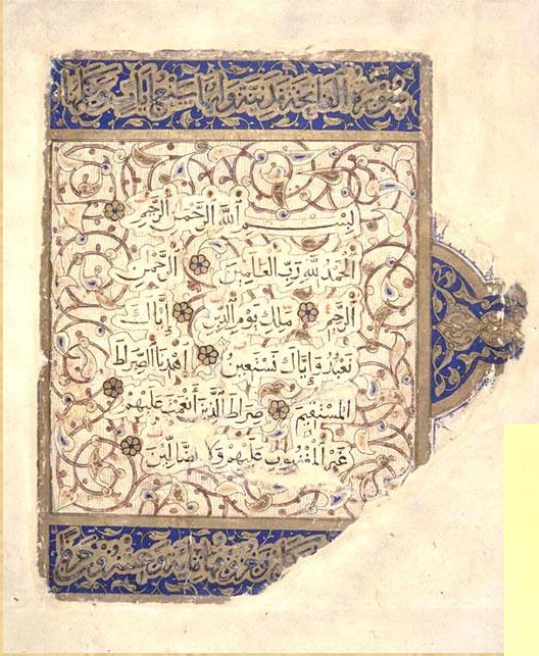 سورة الفاتحة مدنية سبع ايات
بسم الله الرحمن الرحيم
الحمد لله رب العالمين الرحمن
الرحيم ملك يوم الدين إياك
نعبد وإياك نستعين اهدنا الصراط
المستقيم صراط الذين أنعمت عليهم
غير المغضوب عليهم ولا الضالين
وعشرون حرفا